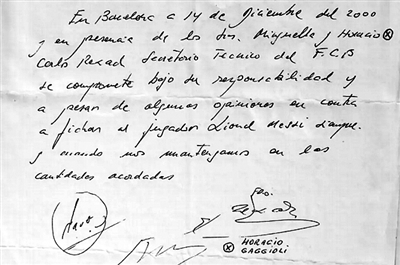 En Barcelona a 14 de Diciembre del 2000
y en presencia de los Srs. Minguella y Horacio ⊗
Carlo Rexach Secretario Tecnico del F.C.B
se compromete bajo su responsabilidad y
a pesar de algunas opiniones en contra
a fichar al jugador Lionel Messi siempre
y cuando nos mantengamos en las
cantidades acordadas
⊗ HORACIO
GAGGIOLI